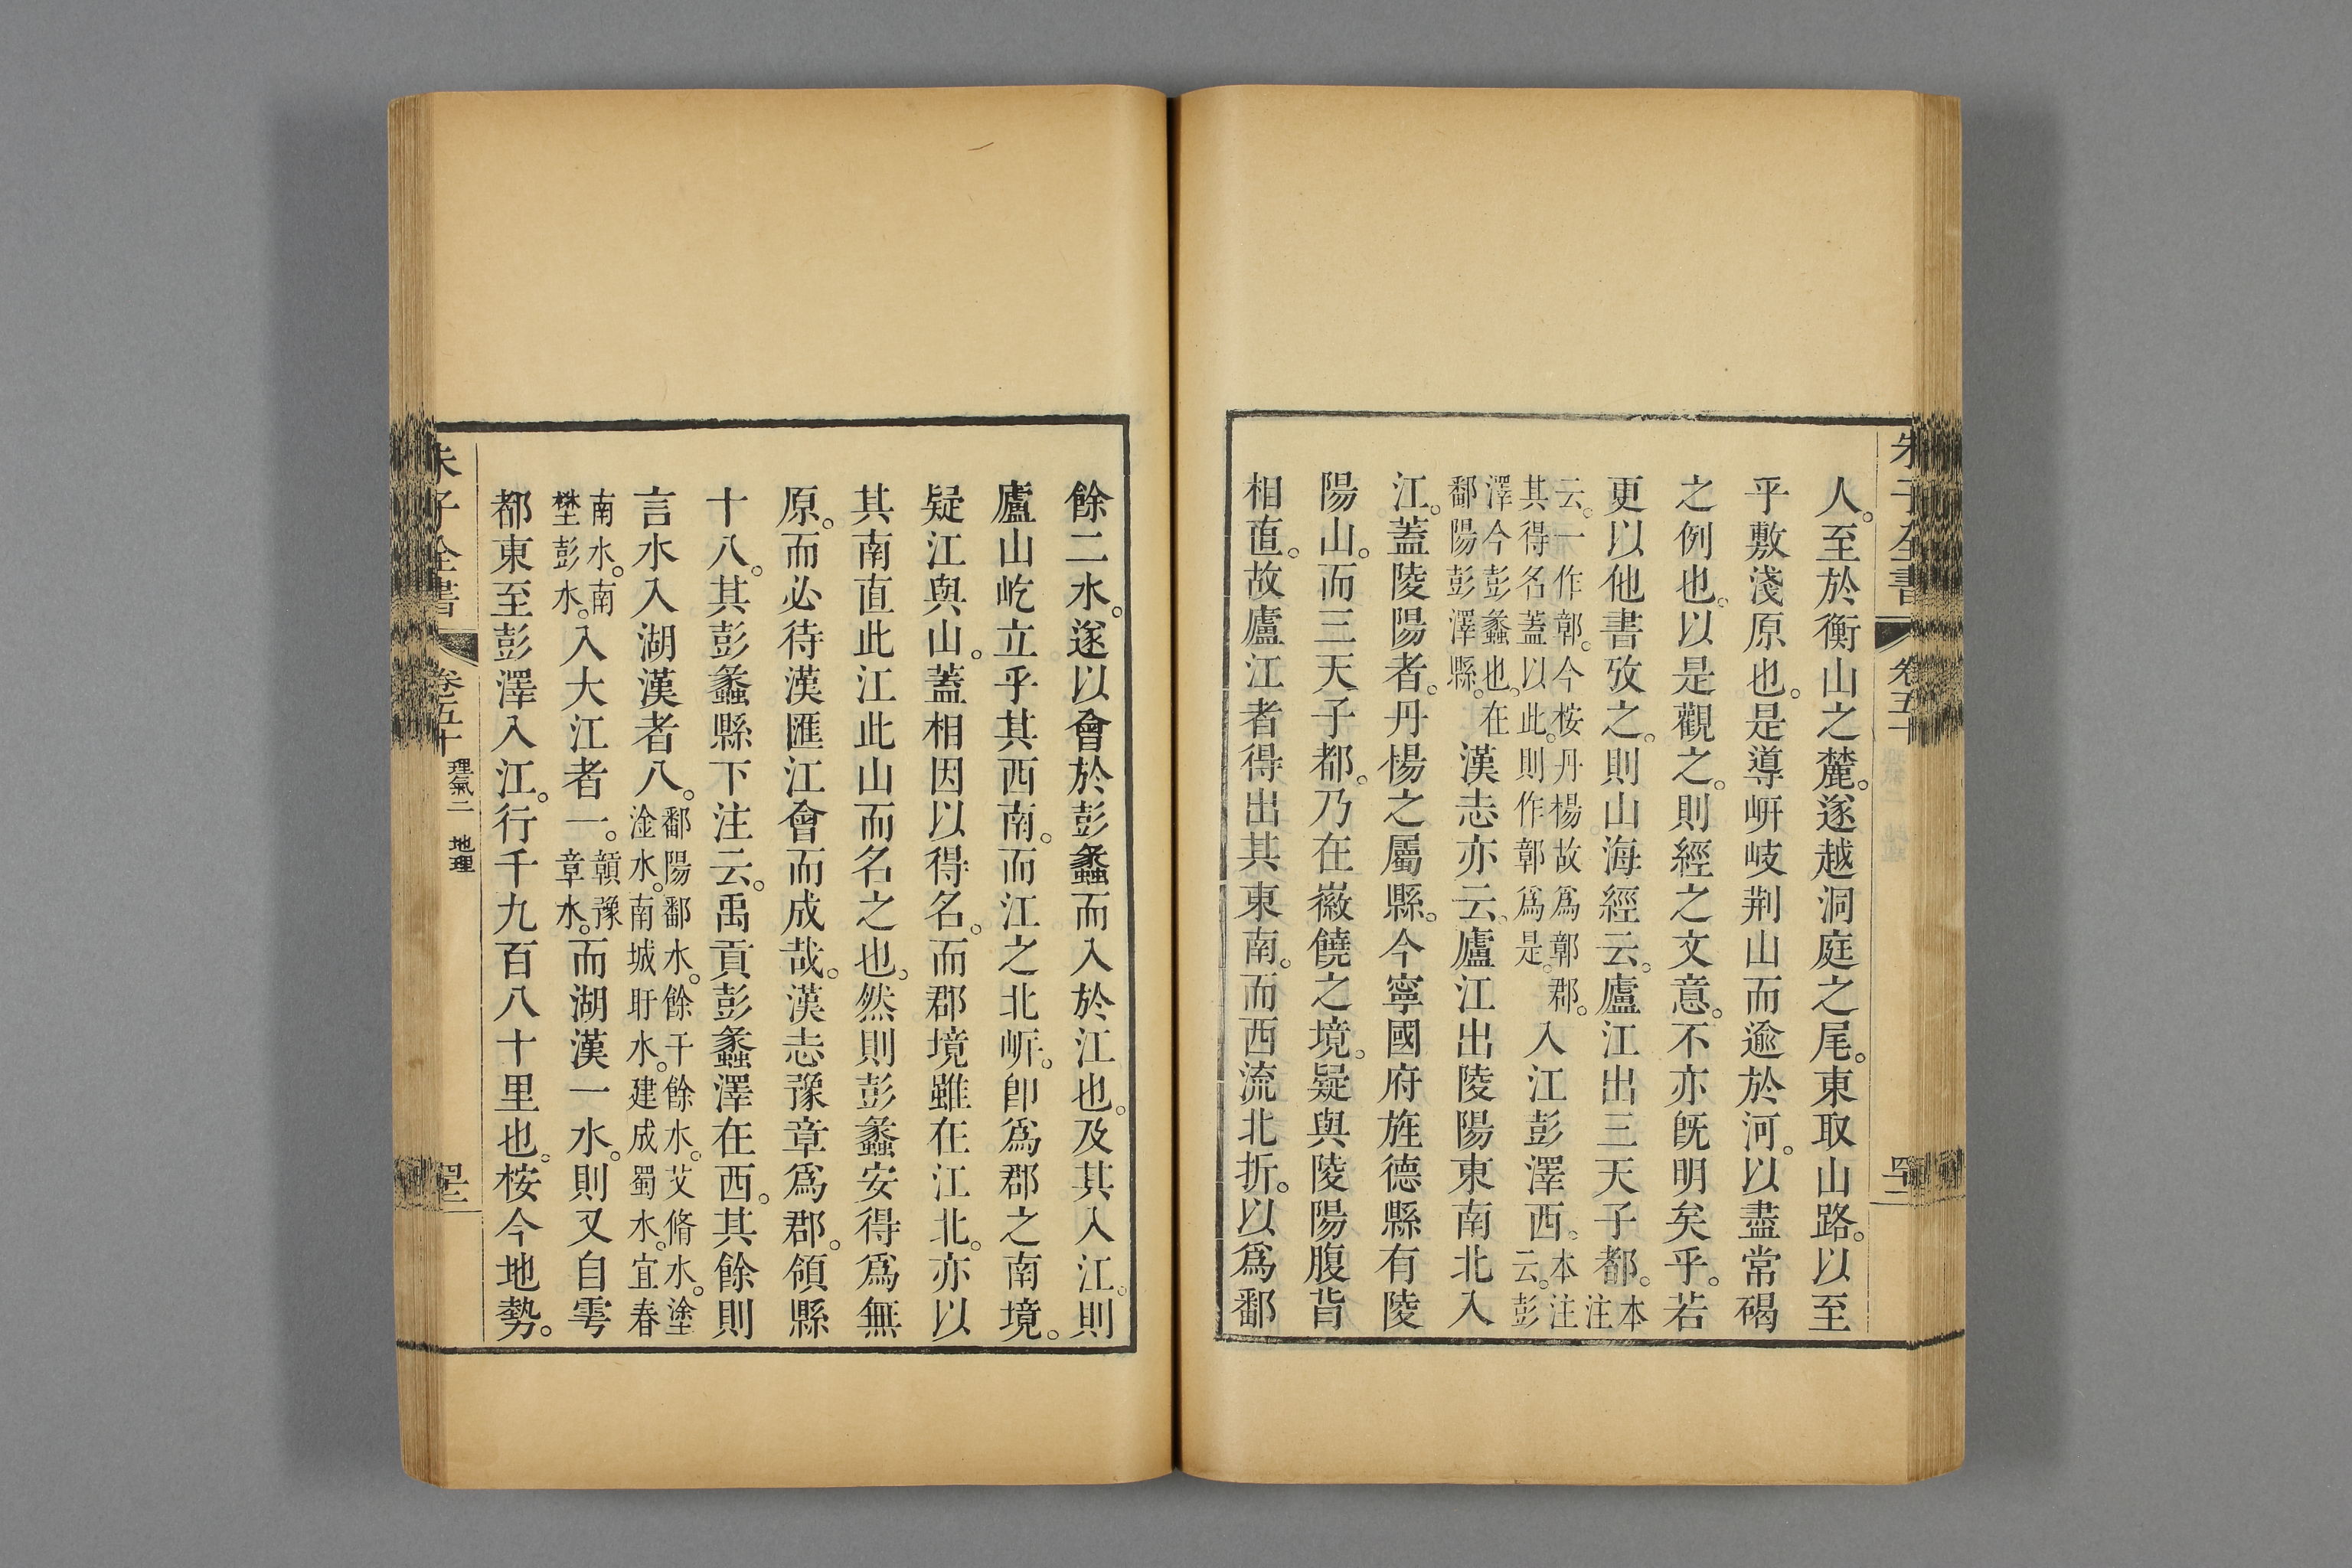 朱子全書 卷五十
人。至於衡山之麓。遂越洞庭之尾。東取山路。以至
乎敷淺原也。是導岍岐荆山而逾於河。以盡常碣
之例也。以是觀之。則經之文意。不亦旣明矣乎。若
更以他書攷之。則山海經云。廬江出三天子都。本注
云。一作鄣。今桉丹楊故爲鄣郡。
其得名蓋以此。則作鄣爲是。入江彭澤西。本注
云。彭
澤今彭蠡也。在
鄱陽彭澤縣。漢志亦云。廬江出陵陽東南北入
江。蓋陵陽者。丹楊之屬縣。今寧國府旌德縣有陵
陽山。而三天子都。乃在徽饒之境。疑與陵陽腹背
相直。故廬江者得出其東南。而西流北折。以爲鄱
餘二水。遂以會於彭蠡而入於江也。及其入江。則
廬山屹立乎其西南。而江之北岍。卽爲郡之南境。
疑江與山。蓋相因以得名。而郡境雖在江北。亦以
其南直此江此山而名之也。然則彭蠡安得爲無
原。而必待漢匯江會而成哉。漢志豫章爲郡。領縣
十八。其彭蠡縣下注云。禹貢彭蠡澤在西。其餘則
言水入湖漢者八。鄱陽鄱水。餘干餘水。艾脩水。塗
淦水。南城盱水。建成蜀水。宜春
南水。南
壄彭水。入大江者一。贛豫
章水。而湖漢一水。則又自雩
都東至彭澤入江。行千九百八十里也。桉今地勢。
朱子全書 卷五十 理氣二 地理